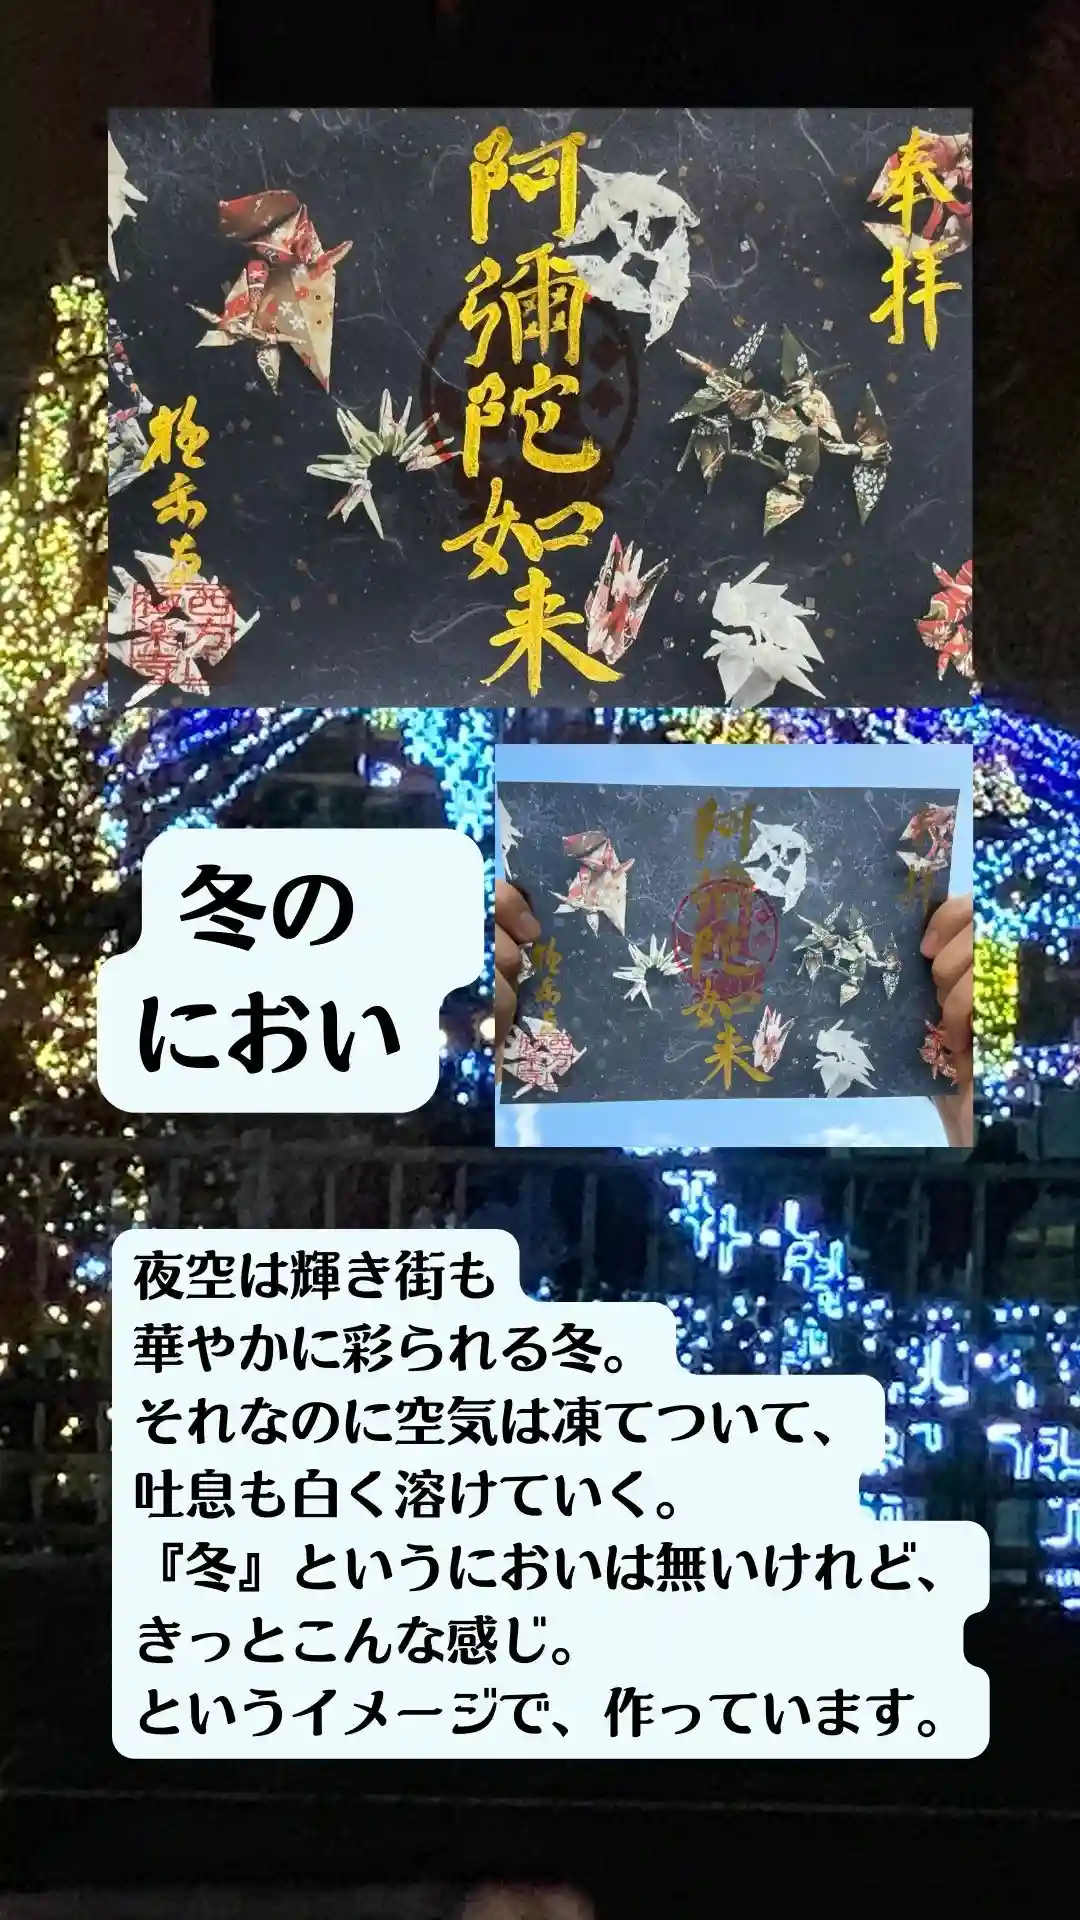 奉拝
阿彌陀如来
極楽寺
西方
極楽寺
冬の
におい
奉拝
阿彌陀如来
極楽寺
夜空は輝き街も
華やかに彩られる冬。
それなのに空気は凍てついて、
吐息も白く溶けていく。
『冬』というにおいは無いけれど、
きっとこんな感じ。
というイメージで、作っています。